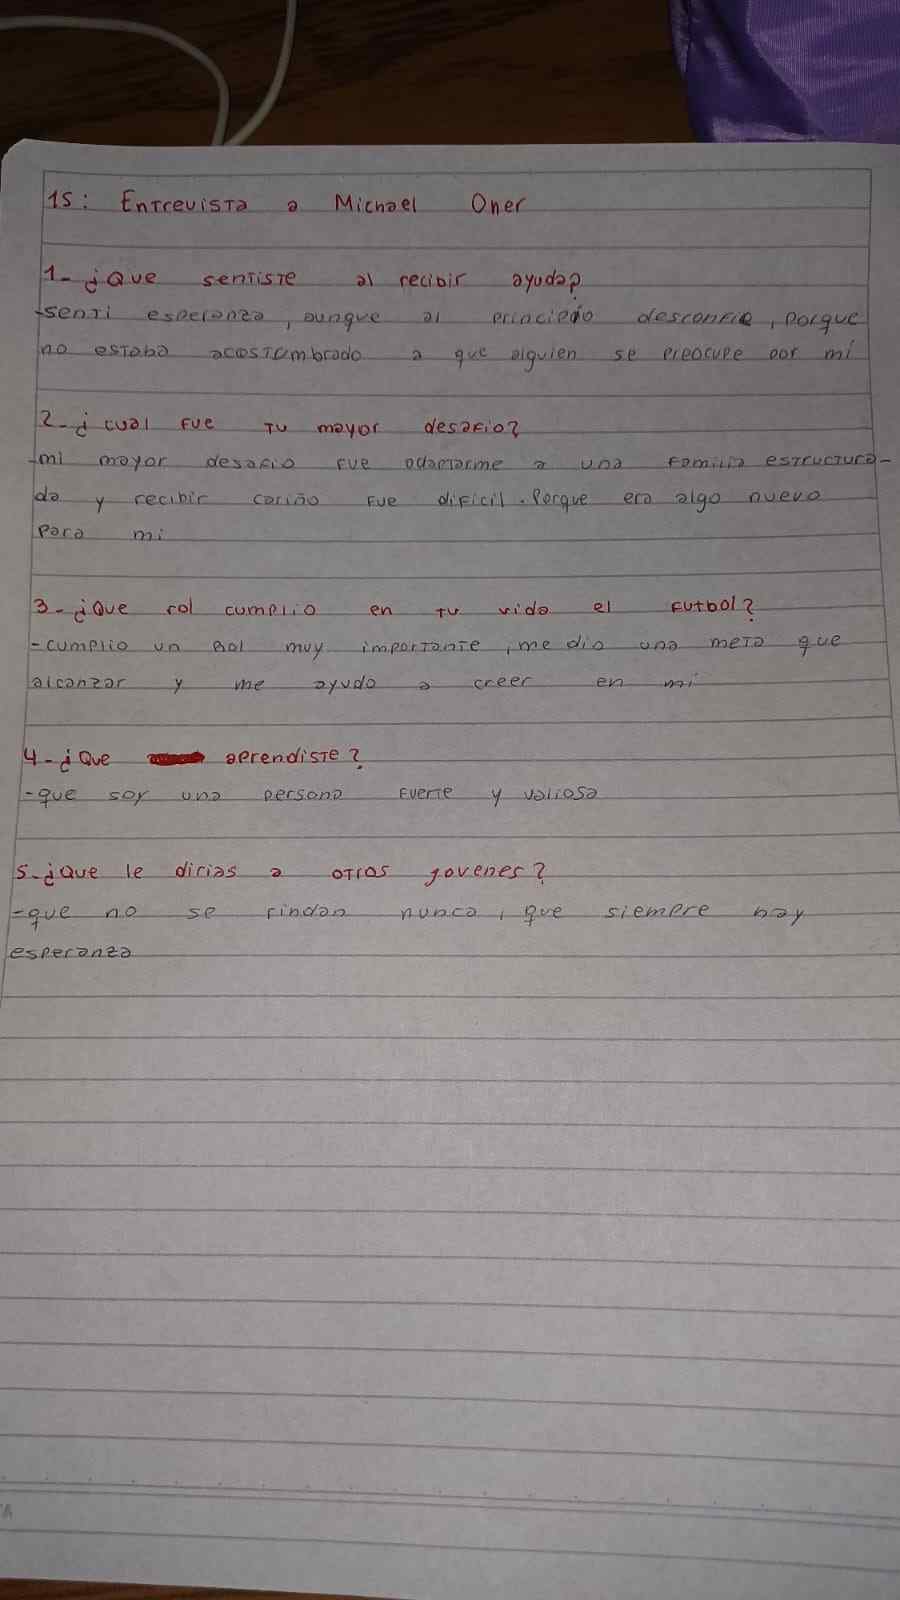 15: Entrevista a Michael Oher
1- ¿Que sentiste al recibir ayuda?
-senti esperanza, aunque al principio desconfie, porque
no estaba acostumbrado a que alguien se preocupe por mí
2-¿cual fue tu mayor desafio?
-mi mayor desafio fue adaptarme a una familia estructura-
da y recibir cariño fue dificil. Porque era algo nuevo
para mi
3-¿Que rol cumplio en tu vida el futbol?
-cumplio un Rol muy importante, me dio una meta que
alcanzar y me ayudo a creer en mí
4-¿Que aprendiste?
-que soy una persona fuerte y valiosa
5-¿Que le dirias a otros jovenes?
-que no se rindan nunca, que siempre hay
esperanza